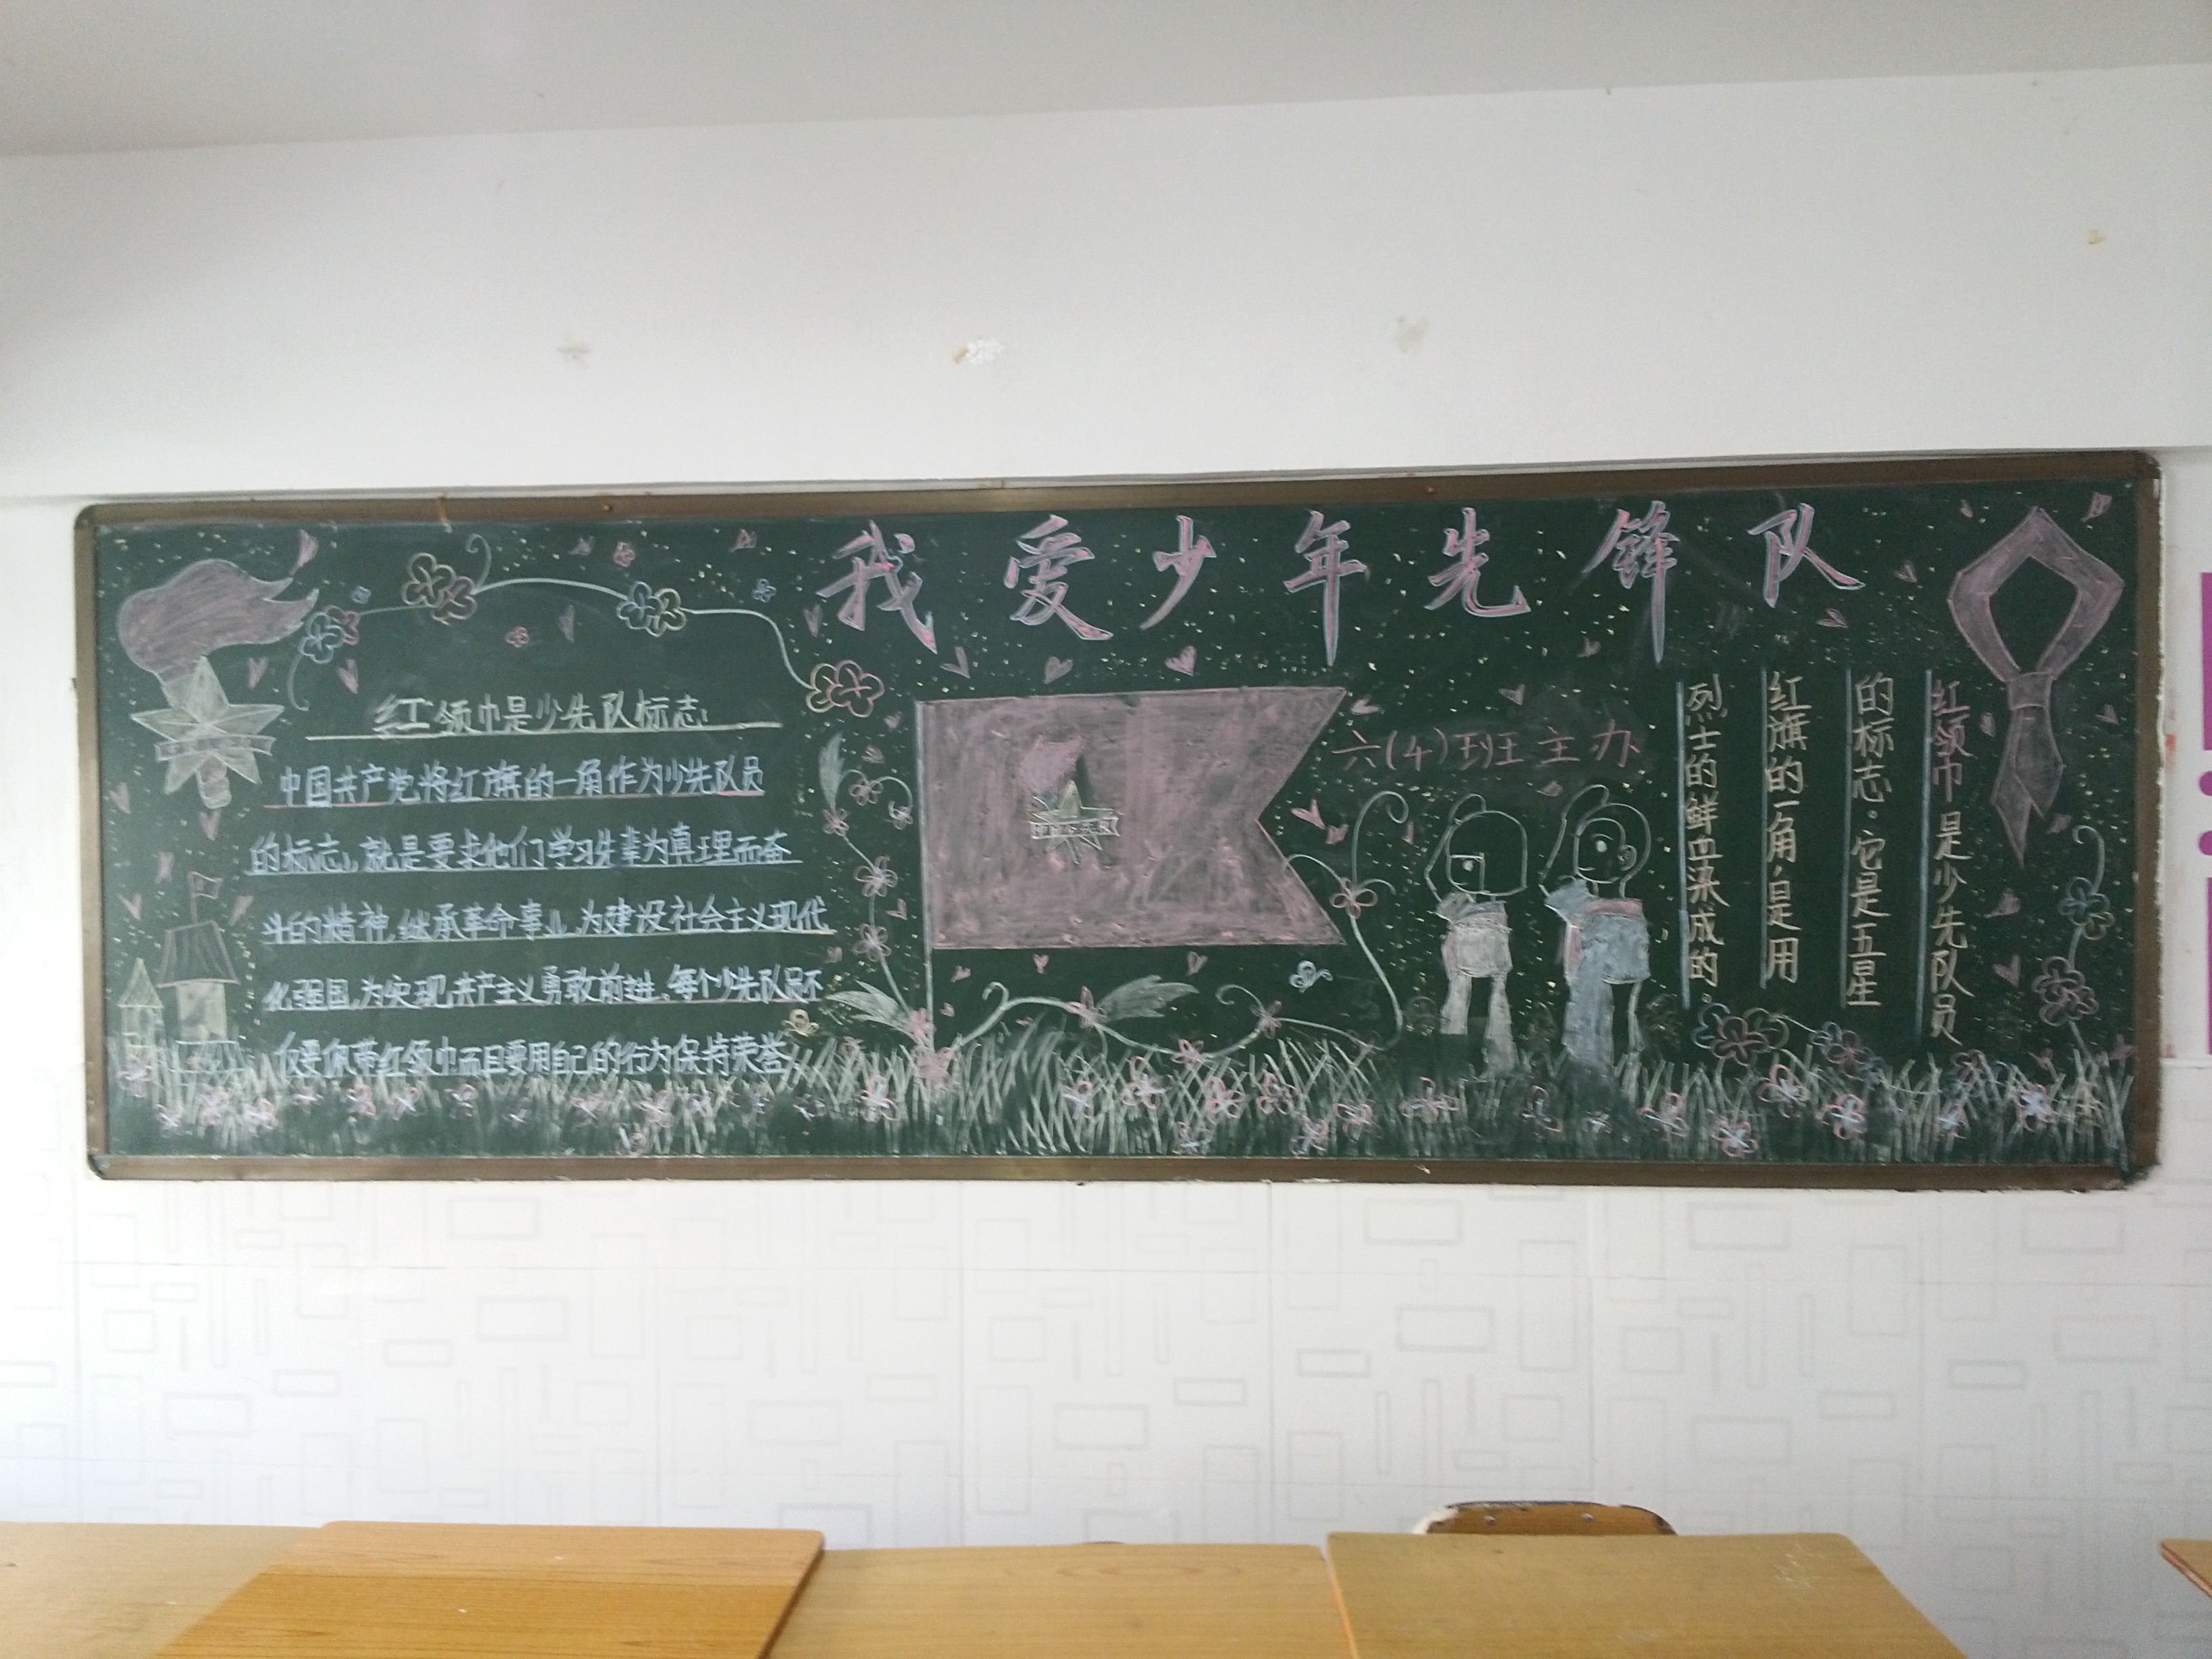 我爱少年先锋队
红领巾是少先队标志
中国共产党将红旗的一角作为少先队员
的标志，就是要求他们学习先辈为真理而奋
斗的精神，继承革命事业，为建设社会主义现代
化强国，为实现共产主义勇敢前进，每个少先队员不
仅要佩带红领巾而且要用自己的行为保持荣誉
六(4)班主办
红领巾是少先队员
的标志。它是五星
红旗的一角，是用
烈士的鲜血染成的。